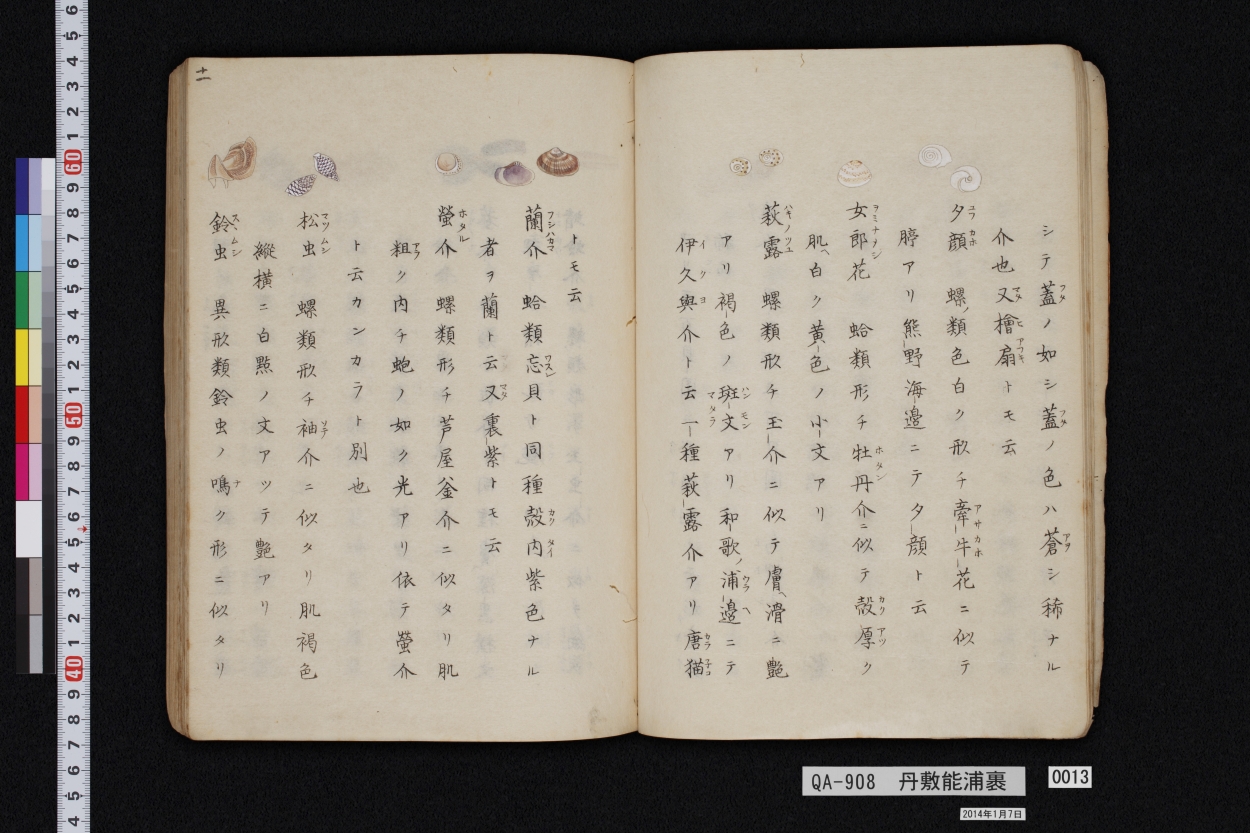 シテ蓋ノ如シ蓋ノ色ハ蒼シ稀ナル
介也又檜扇トモ云
夕顔 螺ノ類色白ク形チ牽牛花ニ似テ
臍アリ熊野海邉ニテタ顔ト云
女郎花 蛤類形チ牡丹介ニ似テ殻厚ク
肌ヘ白ク黄色ノ小文アリ
萩露 螺類形チ玉介ニ似テ膚ヘ滑ニ艶
アリ褐色ノ斑文アリ和歌ノ浦邉ニテ
伊久與介ト云一種萩露介アリ唐猫
トモ云
蘭介 蛤類忘貝ト同種殻内紫色ナル
者ヲ蘭ト云又裏紫トモ云
螢介 螺類形チ芦屋釜介ニ似タリ肌
粗ク内チ蚫ノ如ク光アリ依テ螢介
ト云カンカラト別也
松虫 螺類形チ袖介ニ似タリ肌褐色
縦横ニ白點ノ文アツテ艶アリ
鈴虫 異形類鈴虫ノ鳴ク形ニ似タリ
十一
QA-908 丹敷能浦裹
0013
2014年1月7日